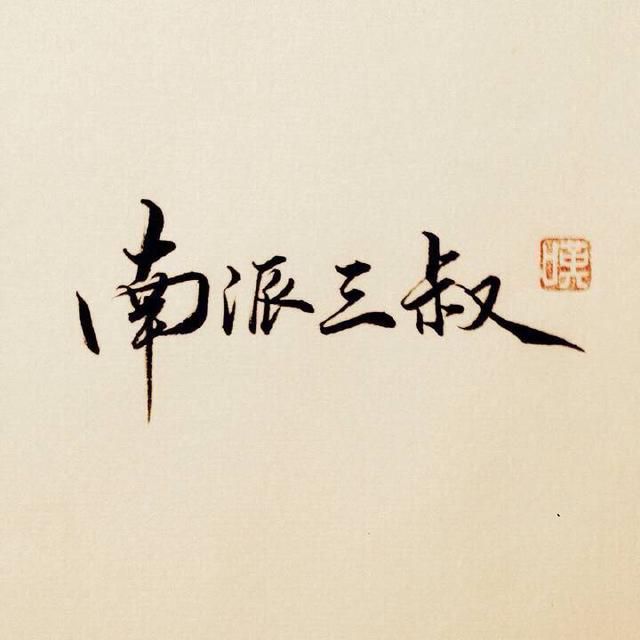 南派三叔